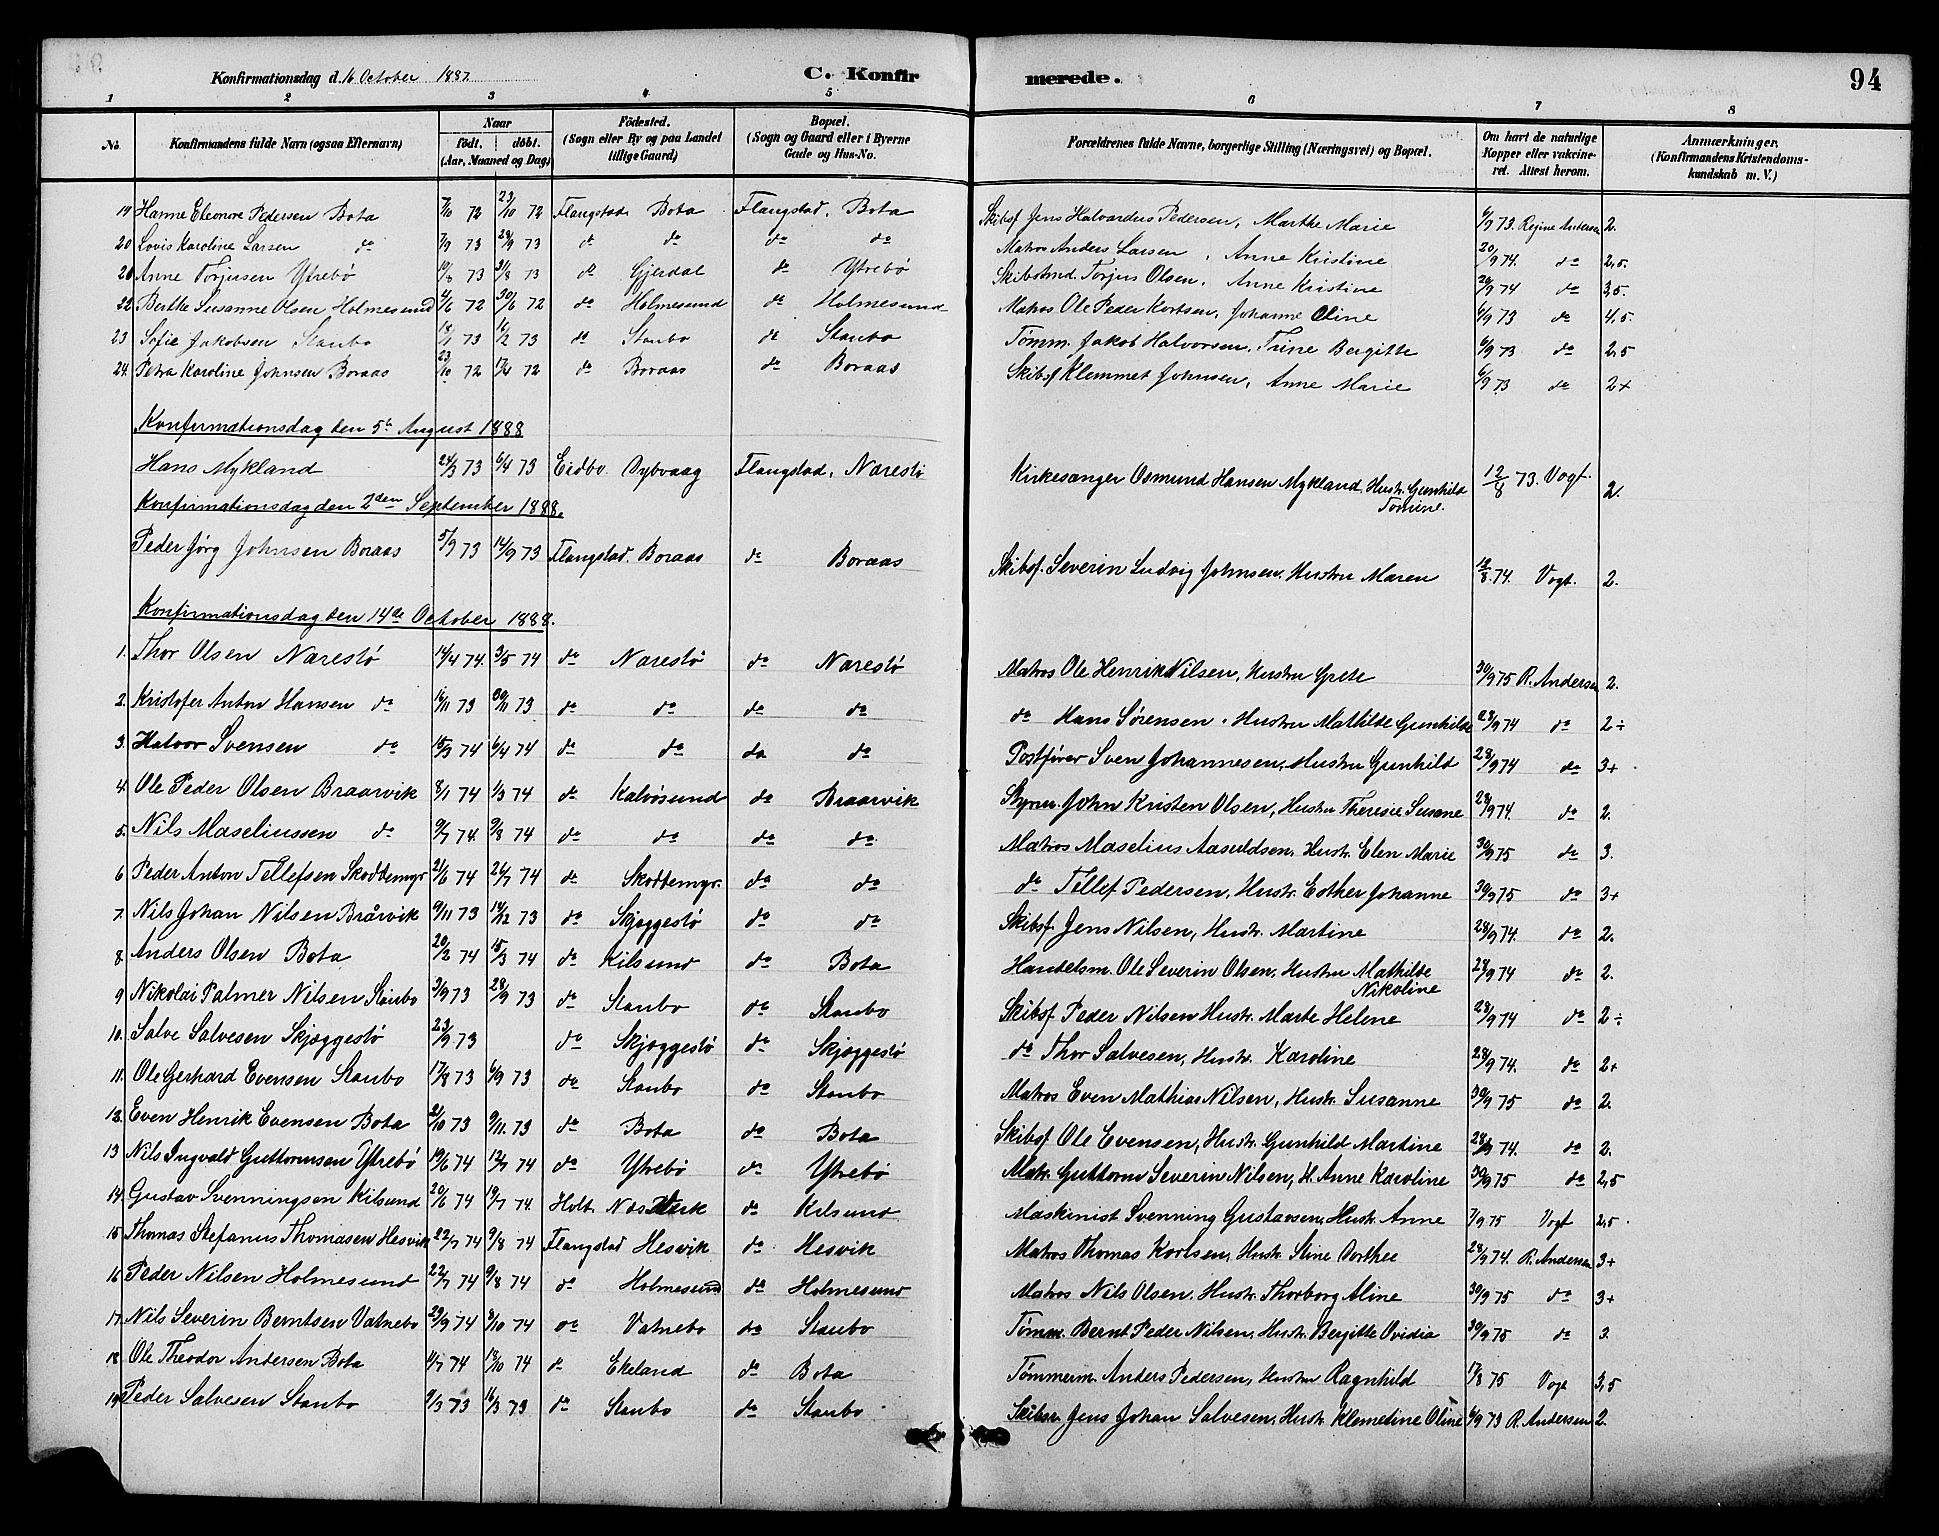 Konfirmationsdag d. 16 October 1887. C. Konfirmerede. 94
1 2 3 4 5 6 7 8
No. Konfirmandens fulde Navn (ogsaa Efternavn) Naar födt. döbt. (Aar, Maaned og Dag) Födested. (Sogn eller By og paa Landet tillige Gaard) Bopæl. (Sogn og Gaard eller i Byerne Gade og Hus-No. Forældrenes fulde Navne, borgerlige Stilling (Næringsvei) og Bopæl. Om havt de naturlige Kopper eller vakcineret. Attest herom. Anmærkninger. (Konfirmandens Kristendomskundskab m. V.)
19 Hanne Eleonore Pedersen Bota 7/10 72 23/10 72 Flangstad. Bota Flangstad. Bota Skibsf. Jens Halvardus Pedersen, Marthe Marie 6/9 73 Regine Andersen 2.
20 Lovis Karoline Larsen do 7/9 73 28/9 73 do do do do Matros Anders Larsen, Anne Kristine 20/9 74. do 2,5.
20 Anne Torjusen Ytrebö 73 31/8 73 do Gjerdal do Ytrebö Skibstmd. Torjus Olsen, Anne Kristine 20/9 74 do 3,5.
22 Berthe Susanne Olsen Holmesund 72 30/6 72 do Holmesund do Holmesund Matros Ole Peder Kortsen, Johanne Oline 6/9 73 do 4,5.
23 Sofie Jakobsen Staubo 18/1 73 16/2 73 do Staubo do Staubo Tømm. Jakob Halvorsen, Trine Bergitte 6/9 73 do 2,5
24. Petra Karoline Johnsen Boraas 23/10 72 72 do Boraas do Boraas Skibsf Klemmet Johnsen, Anne Marie 6/9 73 do 2+
Konfirmationsdag den 5te August 1888
Hans Mykland 24/3 73 6/4 73 Eidbo Dybvaag Flangstad, Narestö Kirkesanger Osmund Hansen Mykland, Hustr. Gunhild Tomine. 12/8 73. Vogt. 2.
Konfirmationsdag den 2den September 1888.
Peder Jörg Johnsen Boraas 5/9 73 14/9 73 Flangstad. Boraas do Boraas Skibsf. Severin Ludvig Johnsen, Hustru Maren 12/8 74. Vogt. 2.
Konfirmationsdag den 14de October 1888.
1. Thor Olsen Narestö 14/4 74. 3/5 74 do Narestö do Narestö Matros Ole Henrik Nilsen, Hustru Grete 30/9 75 R. Andersen 2.
2. Kristofer Anton Hansen do 16/11 73 30/11 73 do do do do do Hans Sørensen, Hustru Mathilde Gunhilde 28/9 74 do 2÷
3. Halvor Svensen do 15/3 74 6/4 74 do do do do Postfører Sven Johannesen, Hustru Gunhild 28/9 74 do 3+
4. Ole Peder Olsen Braarvik 8/1 74 1/3 74 do Kalvösund do Braarvik Styrm. John Kristen Olsen, Hustru Theresie Susane 28/9 74. do 2.
5. Nils Maseliussen do 9/7 74. 9/8 74 do do do do Matros Maselius Aasuldsen, Hustr. Elen Marie 30/9 75 do 3.
6 Peder Anton Tellefsen Skodtemyr 21/6 74 26/7 74 do Skodtemyr. do do do Tellef Pedersen, Hustr. Esther Johanne 30/9 75 do 3+
7. Nils Johan Nilsen Brårvik 9/11 73 14/12 73 do Skjeggestö do do Skibsf. Jens Nilsen, Hustr. Martine 28/9 74. do 2.
8. Anders Olsen Bota 20/2 74 15/3 74 do Kilsund do Bota Handelsm. Ole Severin Olsen, Hustru Mathilde Nikoline 28/9 74 do 2.
9 Nikolai Palmer Nilsen Staubo 3/9 73 28/9 73 do Staubo do Staubo Skibsf. Peder Nilsen Hustr. Marte Helene 28/9 74 do 2÷
10. Salve Salvesen Skjæggestö 23/9 73 do Skjæggestö do Skjæggestö do Thor Salvesen, Hustr. Karoline 28/9 74. do 2+
11. Ole Gerhard Evensen Staubo 17/8 73 6/9 73 do Staubo do Staubo Matros Even Mathias Nilsen, Hustr. Susanne 30/9 75 do 2.
12. Even Henrik Evensen Bota 2/10 73 9/11. 73 do Bota do Bota Skibsf Ole Evensen, Hustr. Gunhild Martine 28/9 74. do 2.
13 Nils Ingvald Guttormsen Ytrebö 19/6 74 12/7 74 do Ytrebö do Ytrebö Matr. Guttorm Severin Nilsen, H. Anne Karoline 30/9 75 do 2,5
14. Gustav Svenningsen Kilsund 20/6 74 19/7 74. Holt. Næs Værk do Kilsund Maskinist Svenning Gustavsen, Hustr. Anne 7/9 75 Vogt 2,5.
15 Thomas Stefanus Thomasen Hesvik 22/7 74 9/8 74 Flangstad Hesvik do Hesvik Matros Thomas Kortsen, Hustr. Stine Dorthee 28/9 74. R. Andersen 3+
16 Peder Nilsen Holmesund 22/7 74 9/8 74 do Holmesund do Holmesund Matros Nils Olsen, Hustr. Thorborg Aline 30/9 75 do 3+
17. Nils Severin Berntsen Vatnebo 29/9 74 8/10 74 do Vatnebo do Staubo Tømm. Bernt Peder Nilsen, Hustr. Bergitte Ovidia 30/9 75 do 3.
18 Ole Theodor Andersen Bota 74 18/10 74 do Ekeland do Bota Tømmerm. Anders Pedersen, Hustru Ragnhild 17/8 75 Vogt 3,5
19 Peder Salvesen Staubo 9/3 73 16/3 73 do Staubo do Staubo Skibsr. Jens Johan Salvesen, Hustr. Klemetine Oline 6/9 73 R. Andersen 2.